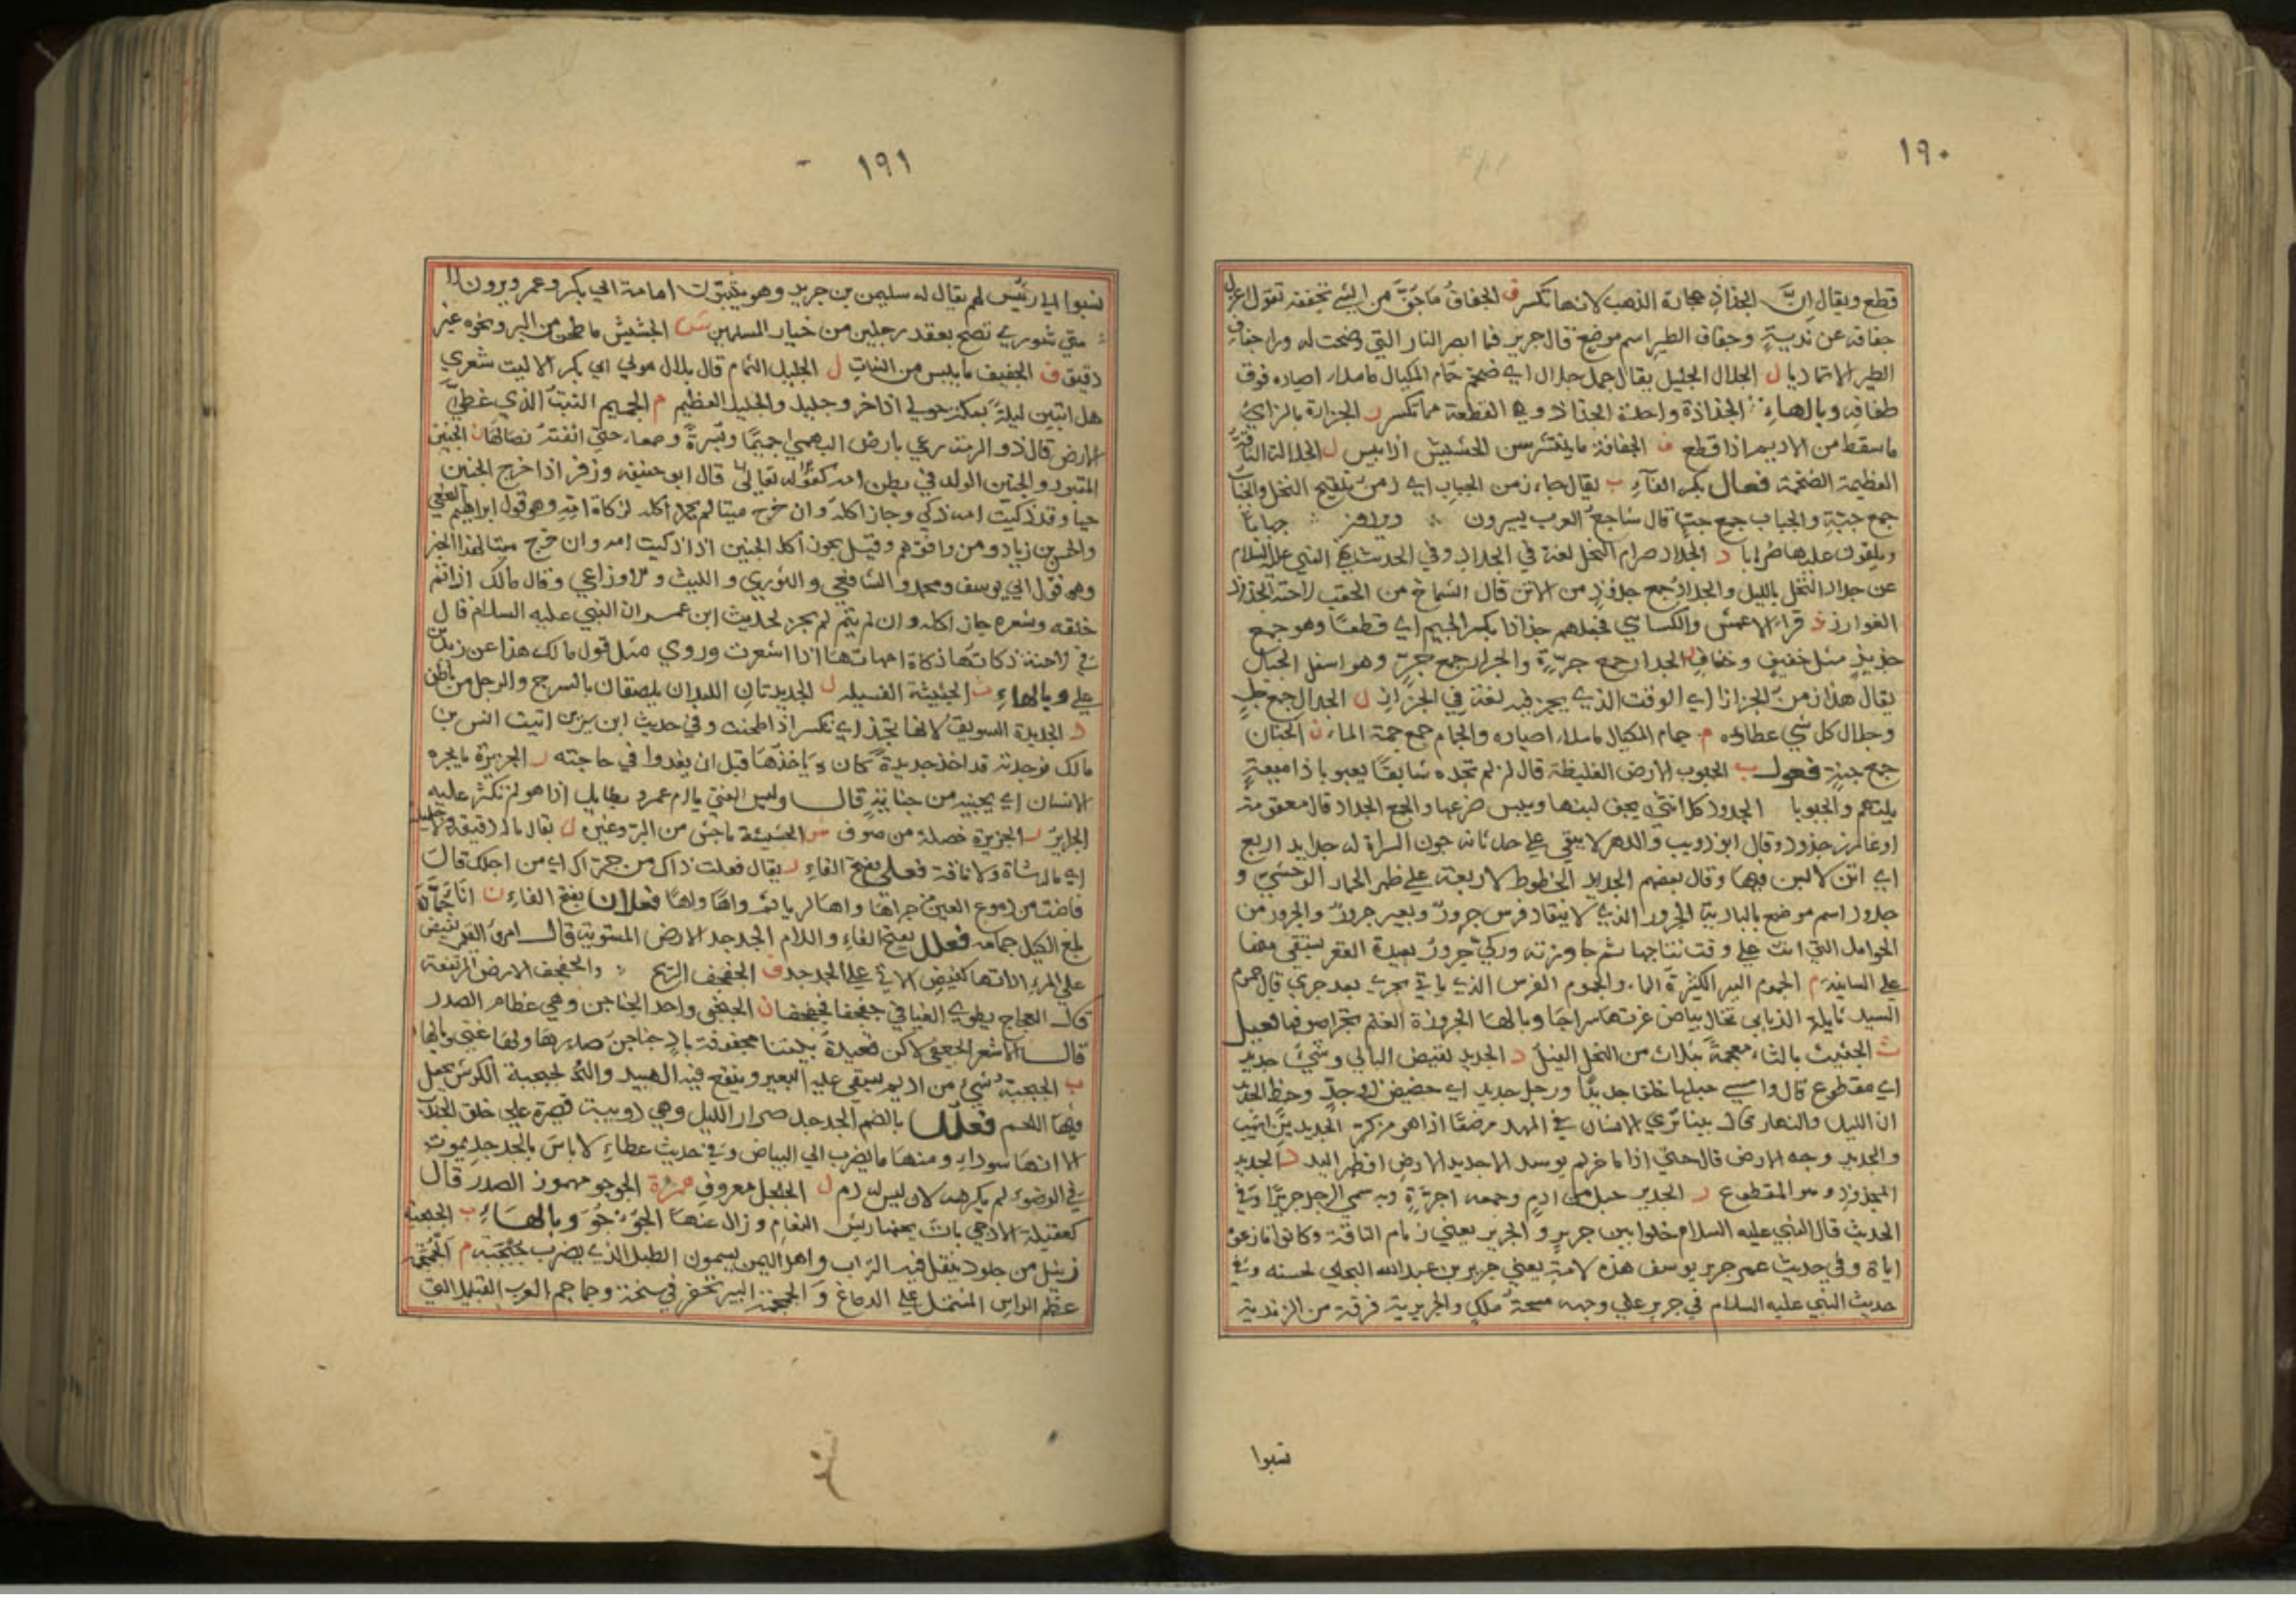 ١٩٠
قطع ويقال ان الجذاذ حجارة الذهب لانها تكسر ف الجفاف ما جف من الشي تجففه تقول اعزل
جفافه عن نديه وجفاف الطير اسم موضع قال جرير فما ابصر النار التي وضحت له ورا جفاف
الطير الا تماديا ل الجلال الجليل يقال جمل جلال اي ضخم م جمام المكيال ما ملا اصباره فوق
طفافه وبالهاء الجذاذة واحدة الجذاذ وهي القطعة مما تكسر ز الجزازة بالزاي
ما سقط من الاديم اذا قطع ف الجفافة ما ينتثر من الحشيش اذا يبس ل الجلالة الناقة
العظيمة الضخمة فعال بكسر الفاء ب يقال جاء زمن الجباب اي زمن تلقيح النخل والجباب
جمع جبة والجباب جمع جب قال ساجع العرب يسرون جبابا
ويلقون عليها ضرابا د الجداد صرام النخل لغة في الجداد وفي الحديث نهى النبي عليه السلام
عن جداد النخل بالليل والجداد جمع جدود من الاتن قال الشماخ من الحقب لاحته الجداد
الغوارز ذ قراء الاعمش والكسائي فجعلهم جذاذا بكسر الجيم اي قطعا وهو جمع
جذيذ مثل خفيف وخفاف ر الجرار جمع جرة والجرار جمع جر وهو اسفل الجبال
يقال هذا زمن الجزاز اي الوقت الذي يجز فيه لغة في الجزاز ل الجلال جمع جل
وجلال كل شي عطاؤه م جمام المكيال ما ملا اصباره والجمام جمع جمة الماء ن الجنان
جمع جنة فعول ب الجبوب الارض الغليظة قال ان لم تجده سابقا يعبوبا ذا ميعة
يلتهم والجبوبا الجدود كل انثى يجف لبنها وييبس ضرعها والجمع الجداد قال معقومة
او غارز جدود وقال ابو ذويب والدهر لا يبقى على حدثانه جون السراة له جدايد اربع
اي اتن لا لبن فيها وقال بعضهم الجدايد الخطوط الاربعة على ظهر الحمار الوحشي و
جدود اسم موضع بالبادية الجرور الذي لا ينقاد فرس جرور وبعير جرور والجرور من
الحوامل التي اتت على وقت نتاجها ثم جاوزته وركي جرور بعيدة القعر يستقى منها
على السانية م الجموم البير الكثيرة الماء والجموم الفرس الذي ياتي بجري بعد جري قال جموم
السيد نايلة الذبابي تخال بياض غرتها سراجا وبالهاء الجزوزة الغنم تجز اصوافها فعيل
ث الجثيث بالثاء معجمة بثلاث من النخل الفسيل د الجديد نقيض البالي وشيء جديد
اي مقطوع قال وامسى حبلها خلقا جديدا ورجل جديد اي حظيظ ذو جد وحظ الجديد
ان الليل والنهار قال بينا ترى الانسان في المهد مرضعا اذا هو من كر الجديدين اشيب
والجديد وجه الارض قال حتى اذا ما خر لم يوسد الا جديد الارض او ظهر اليد ذ الجذيذ
المجذوذ وهو المقطوع ر الجرير حبل من ادم وجمعه اجرة وبه سمي الرجل جريرا وفي
الحديث قال النبي عليه السلام خلوا بين جرير والجرير يعني زمام الناقة وكانوا نازعوه
اياه وفي حديث عمر جرير يوسف هذه الامة يعني جرير بن عبد الله البجلي لحسنه وفي
حديث النبي عليه السلام في جرير على وجهه مسحة ملك والجريرية فرقة من الزيدية
نسبوا
١٩١
نسبوا الى رئيس لهم يقال له سليمن بن جرير وهو يثبتون امامة ابي بكر وعمر ويرون ا
متى شورى تصح بعقد رجلين من خيار المسلمين ش الجشيش ما طحن من البر ونحوه غير
دقيق ف الجفيف ما يبس من النبات ل الجليل الثمام قال بلال مولى ابي بكر الا ليت شعري
هل ابيتن ليلة بمكة حولي اذخر وجليل والجليل العظيم م الجميم النبت الذي غطى
الارض قال ذو الرمة رعى بارض البهمى جميما وبسرة وصمعاء حتى انفته نصالها ن الجنين
المقبور والجنين الولد في بطن امه كقوله تعالى قال ابو حنيفه وزفر اذا خرج الجنين
حيا وقد ذكيت امه ذكي وجاز اكله وان خرج ميتا لم يجز اكله لزكاة امه وهو قول ابراهيم النخعي
والحسن بن زياد ومن وافقهم وقيل يجوز اكل الجنين اذا ذكيت امه وان خرج ميتا لهذا الخبر
وهو قول ابي يوسف ومحمد والشافعي والثوري والليث والاوزاعي وقال مالك اذا تم
خلقه وشعره جاز اكله وان لم يتم لم يجز لحديث ابن عمر ان النبي عليه السلام قال
في الاجنة ذكاتها ذكاة امهاتها اذا اشعرت وروي مثل قول مالك هذا عن زيد بن
علي وبالهاء ث الجثيثة الفسيله ل الجديدتان اللبدان يلصقان بالسرج والرحل من باطن
ذ الجذيذة السويق لانها تجذ اي تكسر اذا طحنت وفي حديث ابن سيرين اتيت انس بن
مالك فوجدته قد اخذ جذيذة كان ياخذها قبل ان يغدوا في حاجته ر الجريرة ما يجره
الانسان اي يجنيه من جناية قال وليس الفتى يا ام عمرو بطايل اذا هو لم تكثر عليه
الجراير ز الجزيزة خصلة من صوف ش الجشيشة ما جش من البر وغيره ل يقال ماله دقيقة ولا جليلة
اي ماله شاة ولا ناقة فعلى بفتح الفاء ر يقال فعلت ذاك من جراك اي من اجلك قال
فاضت دموع العين من جراها واها لريا ثم واها واها فعلان بفتح الفاء ن اناء جمان
بلغ الكيل جمامه فعلل بفتح الفاء واللام الجدجد الارض المستوية قال امرؤ القيس تفيض
على المرء اردانها كفيض الاتي على الجدجد ف الجفجف الريح والجفجف الارض المرتفعة
قال العجاج يطوي الفيافي جفجفا فجفجفا ن الجنجن واحد الجناجن وهي عظام الصدر
قال الاشعر الجعفي لاكن قعيدة بيتنا مجفوة باد جناجن صدرها ولها غنى وبالهاء
ب الجبجبة شيء من اديم يسقى عليه البعير وينقع فيه الهبيد والجبجبة الكرش يجعل
فيها اللحم فعلل بالضم الجدجد صرار الليل وهي دويبة قصيرة على خلق الجندب
الا انها سوداء ومنها ما يضرب الى البياض وفي حديث عطاء لا باس بالجدجد يموت
في الوضوء لم يكرهه لانه ليس له دم ل الجلجل معروف همزة الجوجو مهموز الصدر قال
كعقيلة الادحي بات يحفها ريش النعام وزال عنها الجوجو وبالهاء ب الجبجبة
زبيل من جلود ينقل فيه التراب واهل اليمن يسمون الطبل الذي يضرب جبجبة م الجمجمة
عظم الراس المشتمل على الدماغ والجمجمة البير تحفر في سبخة وجماجم العرب القبايل التي